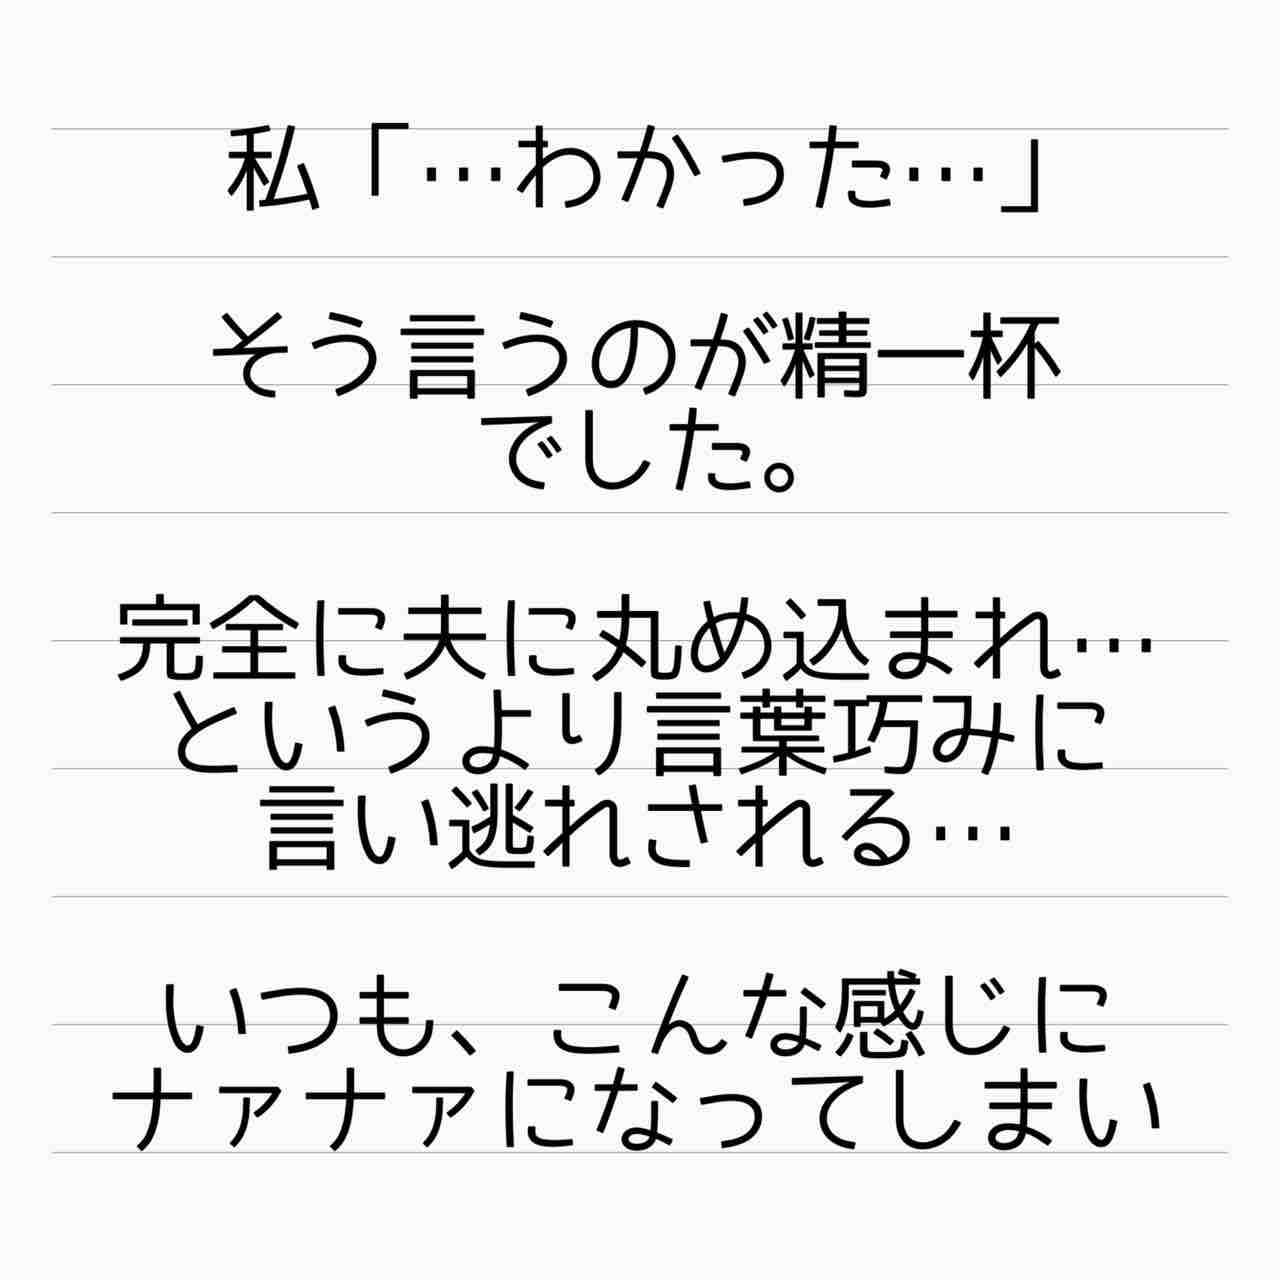 私「…わかった…」
そう言うのが精一杯
でした。
完全に夫に丸め込まれ…
というより言葉巧みに
言い逃れされる…
いつも、こんな感じに
ナァナァになってしまい